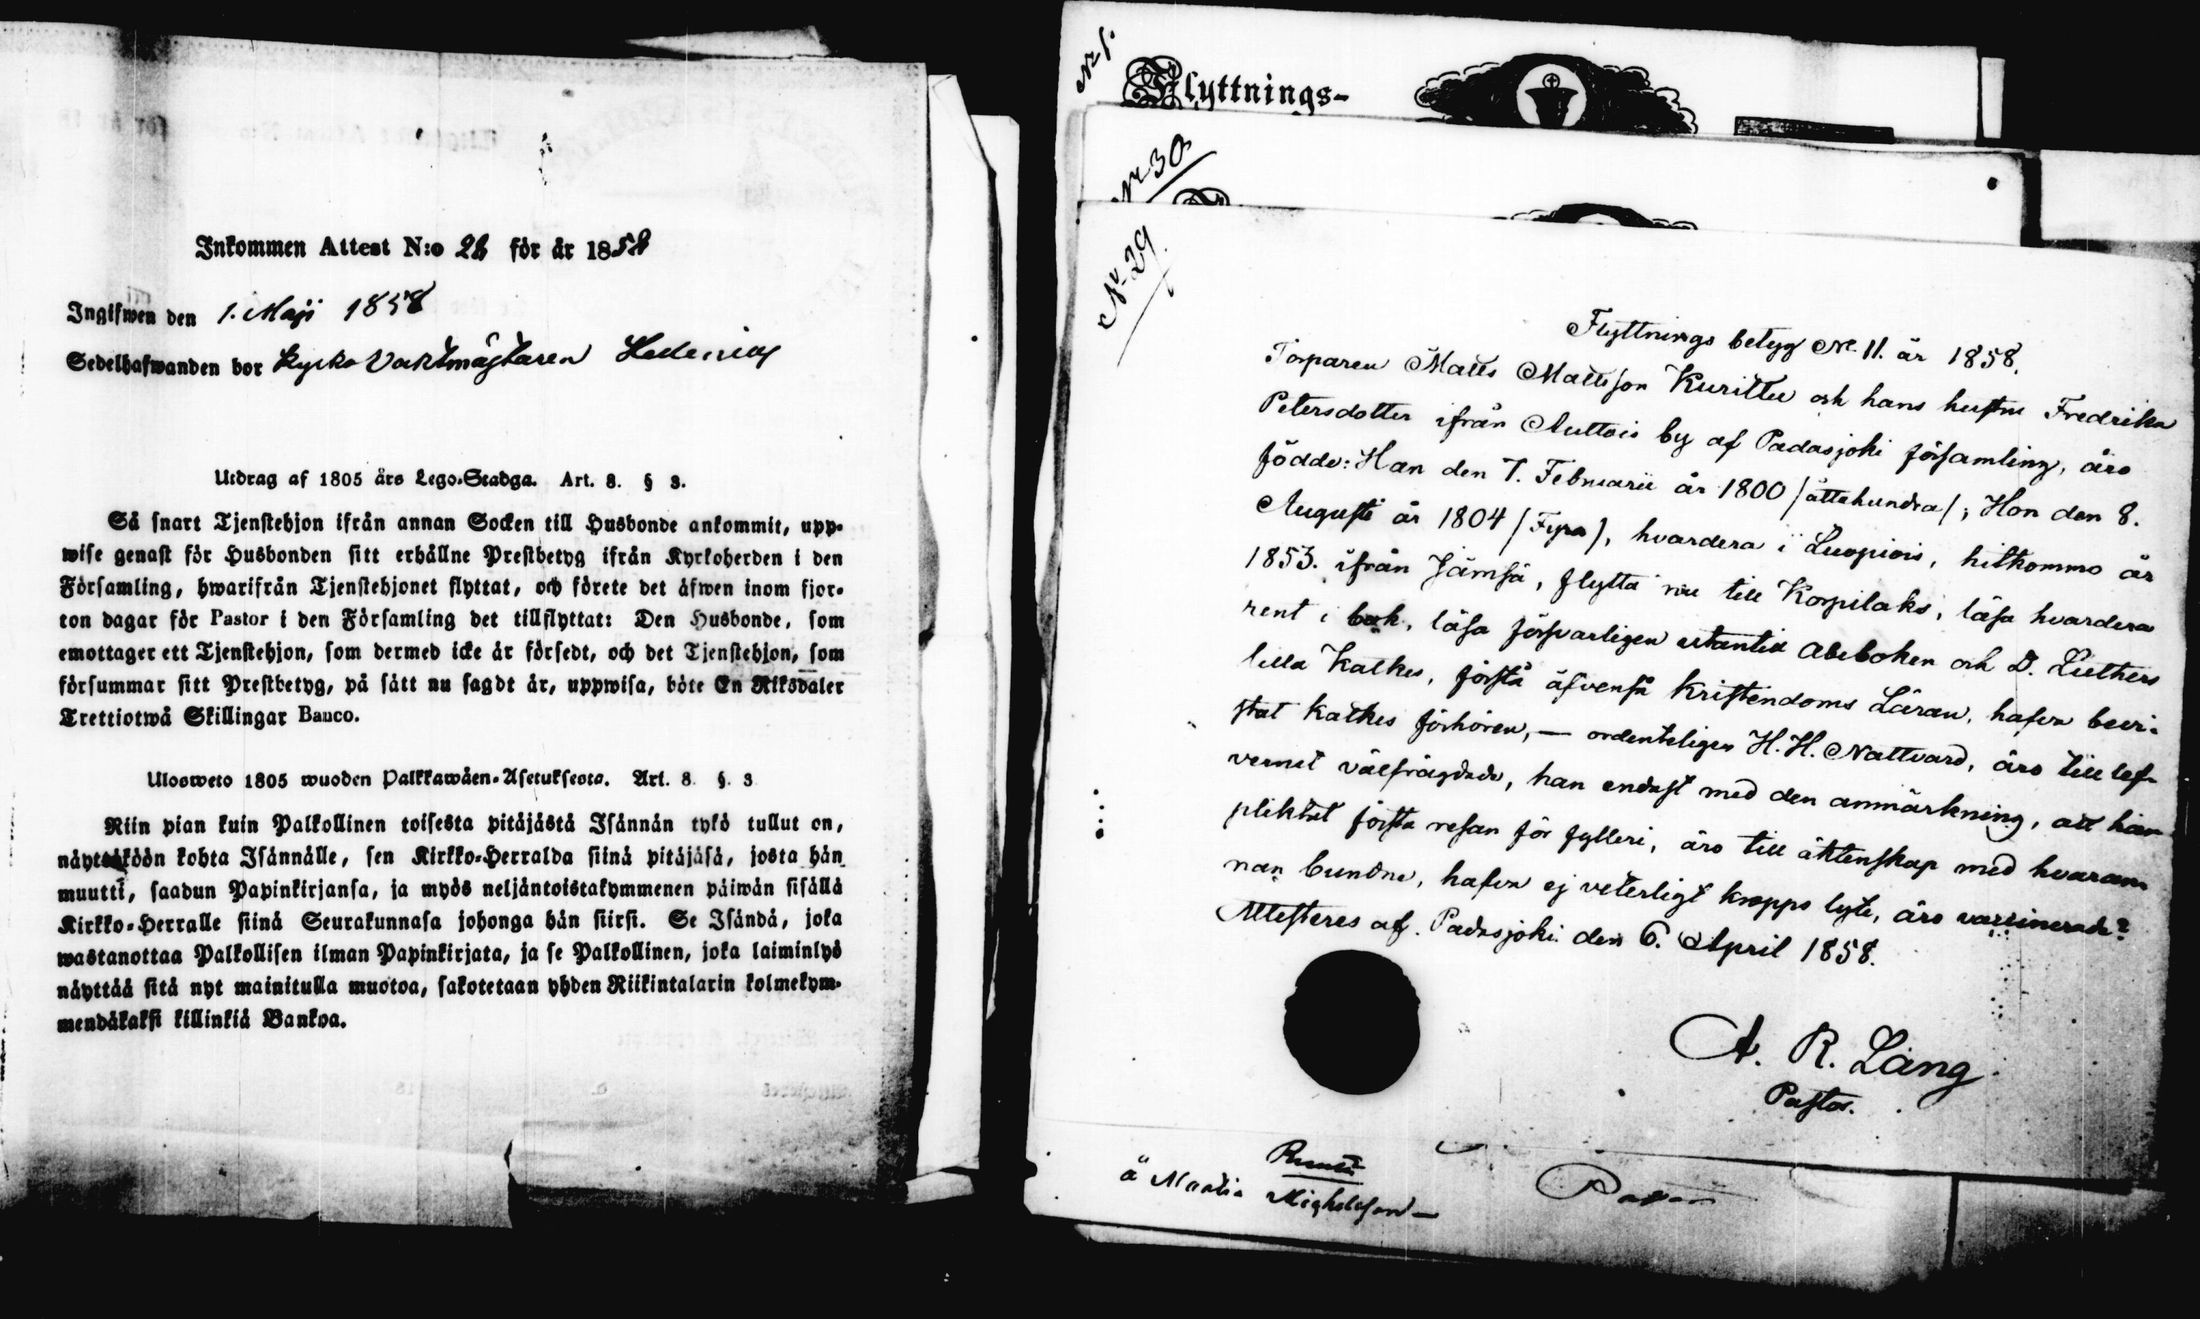 Inkommen Attest N:o 28 för år 1858
Ingifwen den 1. Maji 1858
Sedelhafwanden bor Kyrko Vaktmästaren Hedenius
Utdrag af 1805 års Lego-Stadga. Art. 8. § 3.
Så snart Tjenstehjon ifrån annan Socken till Husbonde ankommit, upp-
wise genast för Husbonden sitt erhållne Prestbetyg ifrån Kyrkoherden i den
Församling, hwarifrån Tjenstehjonet flyttat, och förete det äfwen inom fjor-
ton dagar för Pastor i den Församling det tillflyttat: Den Husbonde, som
emottager ett Tjenstehjon, som dermed icke är försedt, och det Tjenstehjon, som
försummar sitt Prestbetyg, på sätt nu sagdt är, uppwisa, böte En Riksdaler
Trettiotwå Skillingar Banco.
Ulosweto 1805 wuoden Palkkawäen-Asetuksesta. Art. 8. §. 3
Niin pian kuin Palkollinen toisesta pitäjästä Isännän tykö tullut on,
näyttäköön kohta Isännälle, sen Kirkko-Herralda siinä pitäjäsä, josta hän
muutti, saadun Papinkirjansa, ja myös neljäntoistakymmenen päiwän sisällä
Kirkko-Herralle siinä Seurakunnasa johonga hän siirsi. Se Isändä, joka
wastanottaa Palkollisen ilman Papinkirjata, ja se Palkollinen, joka laiminlyö
näyttää sitä nyt mainitulla muotoa, sakotetaan yhden Riikintalarin kolmekym-
mendäkaksi killinkiä Bankoa.
Nr 1.
Flyttnings-
Nr 30
No 29.
Flyttnings betyg No. 11. år 1858.
Torparen Matts Mattsson Kurittu och hans hustru Fredrika
Petersdotter ifrån Auttois by af Padasjoki församling, äro
födde: Han den 7. Februarii år 1800 /åttahundra/; Hon den 8.
Augusti år 1804 /Fyra/, hvardera i Luopiois, hitkomme år
1853. ifrån Jämsä, flytta nu till Korpilaks, läsa hvardera
rent i bok, läsa försvarligen utantill Abcboken och D. Luthers
lilla Katkes, förstå äfvenså Kristendoms Läran, hafva bevi-
stat Katkes förhören, — ordenteligen H. H. Nattvard, äro till lef-
vernet välfrägdade, han endast med den anmärkning, att han
pliktat första resan för fylleri, äro till äktenskap med hvaran-
nan bundne, hafva ej veterligt kropps lyte, äro vaccinerade?
Attesteras af. Padasjoki den 6. April 1858.
A. R. Lång
Pastor.
å Mattis Michelsson —